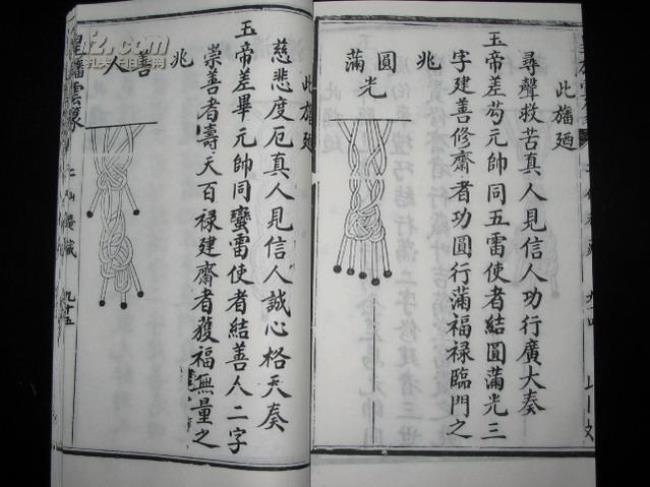 此旛廼
尋聲救苦真人見信人功行廣大奏
玉帝差茍元帥同五雷使者結圓滿光三
字建善修齋者功圓行滿福禄臨門之
兆
圓滿
光
此旛廼
慈悲度厄真人見信人誠心格天奏
玉帝差畢元帥同蠻雷使者結善人二字
崇善者壽天百禄建齋者獲福無量之
兆
善人
旛雲篆
九十五